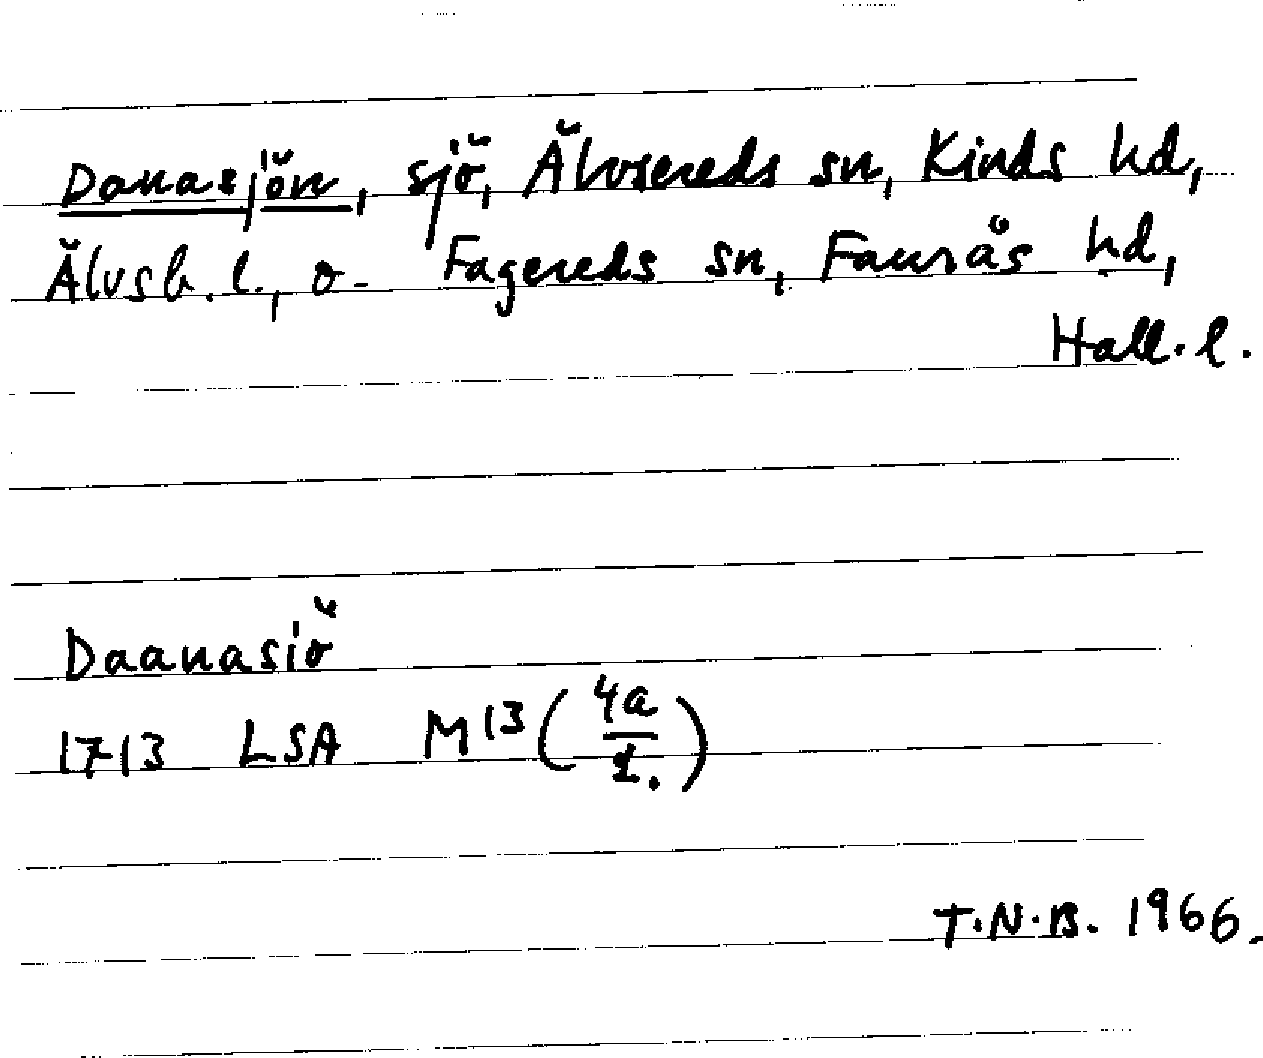 Danasjön, sjö, Älvsereds sn, Kinds hd,
Älvsb. l., o. Fagereds sn, Faurås hd,
Hall. l.
Daanasiö
1713 LSA M13 (4a/1.)
T.N.B. 1966.